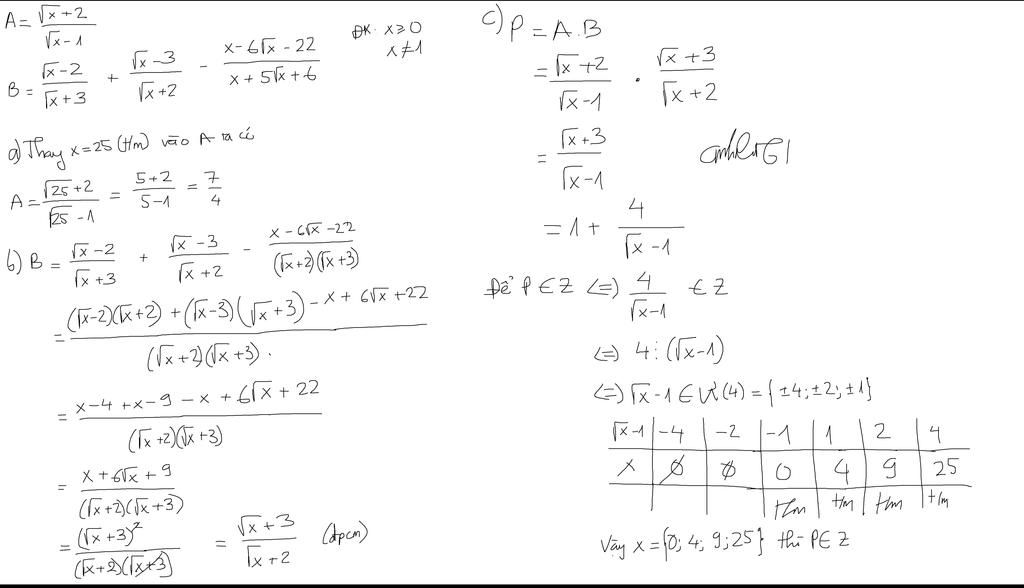 A = (√x + 2)/(√x − 1)
B = (√x − 2)/(√x + 3) + (√x − 3)/(√x + 2) − (x − 6√x − 22)/(x + 5√x + 6)
ĐK. x ≥ 0
x ≠ 1
a) Thay x = 25 (t/m) vào A ta có
A = (√25 + 2)/(√25 − 1) = (5 + 2)/(5 − 1) = 7/4
b) B = (√x − 2)/(√x + 3) + (√x − 3)/(√x + 2) − (x − 6√x − 22)/((√x + 2)(√x + 3))
= ((√x − 2)(√x + 2) + (√x − 3)(√x + 3) − x + 6√x + 22)/((√x + 2)(√x + 3)).
= (x − 4 + x − 9 − x + 6√x + 22)/((√x + 2)(√x + 3))
= (x + 6√x + 9)/((√x + 2)(√x + 3))
= (√x + 3)²/((√x + 2)(√x + 3)) = (√x + 3)/(√x + 2) (đpcm)
c) P = A.B
= (√x + 2)/(√x − 1) . (√x + 3)/(√x + 2)
= (√x + 3)/(√x − 1)
= 1 + 4/(√x − 1)
Để P ∈ Z <=> 4/(√x − 1) ∈ Z
<=> 4 ⋮ (√x − 1)
<=> √x − 1 ∈ Ư(4) = {±4; ±2; ±1}
√x − 1 | −4 | −2 | −1 | 1 | 2 | 4
x | ∅ | ∅ | 0 | 4 | 9 | 25
t/m t/m t/m t/m
Vậy x = {0; 4; 9; 25} thì P ∈ Z